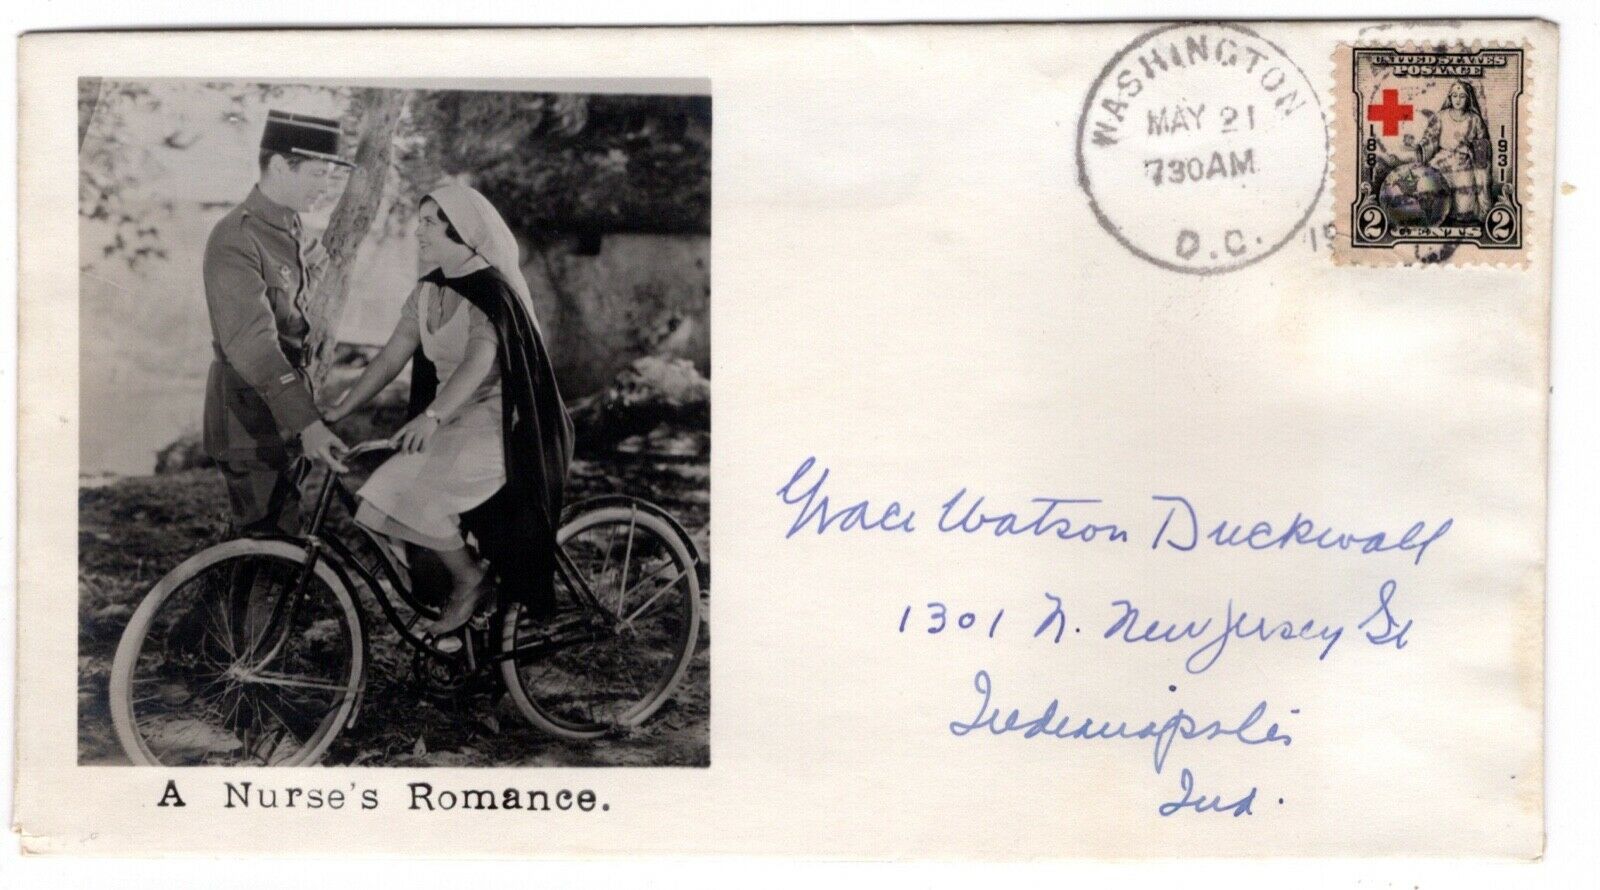 WASHINGTON
MAY 21
730AM
D.C.
19
UNITED STATES
POSTAGE
1881
1931
2 CENTS 2
Grace Watson Duckwall
1301 N. New Jersey St
Indianapolis
Ind.
A Nurse's Romance.